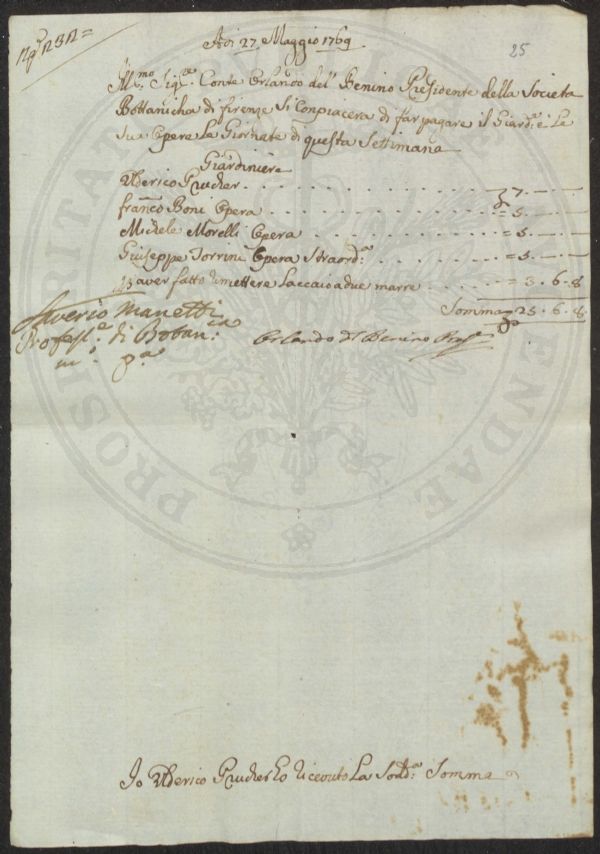 Adi 27 Maggio 1769
25
Ill.mo Sig.re Conte Orlando del Benino Presidente della Societa
Bottanicha di firenze Si Conpiacera di far pagare il Giard.e e Le
Sua Opere La Giornate di questa Settimana
Giardiniere
Ulderico Prucher . . . . . . . . . . . . 7. —
franco Boni Opera . . . . . . . . . . . = 5. —
Michele Morelli Opera . . . . . . . . . = 5. —
Giuseppe Torrini Opera Straord.a . . . = 5. —
aver fatto rimettere Laccaio a due marre . . = 3. 6. 8
Somma 25. 6. 8.
Saverio Manetti
Profess.e di Botan.ca
m.o p.a
Orlando del Benino Pres.e
Io Ulderico Prucher ho riceuto La Sod.a Somma
PROSPERITATI PUBLICAE AUGENDAE